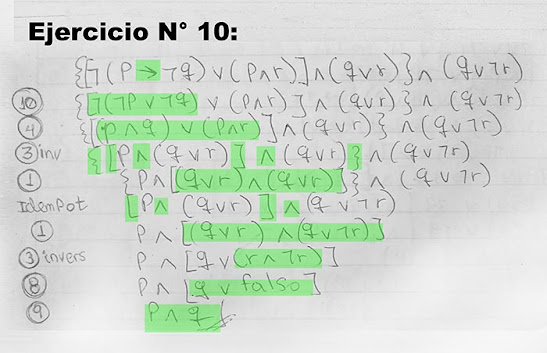 Ejercicio N° 10:
{[¬(p → ¬q) ∨ (p ∧ r)] ∧ (q ∨ r)} ∧ (q ∨ ¬r)
⑩ {[¬(¬p ∨ ¬q) ∨ (p ∧ r)] ∧ (q ∨ r)} ∧ (q ∨ ¬r)
④ {[(p ∧ q) ∨ (p ∧ r)] ∧ (q ∨ r)} ∧ (q ∨ ¬r)
③ inv {[p ∧ (q ∨ r)] ∧ (q ∨ r)} ∧ (q ∨ ¬r)
① {p ∧ [(q ∨ r) ∧ (q ∨ r)]} ∧ (q ∨ ¬r)
Idempot [p ∧ (q ∨ r)] ∧ (q ∨ ¬r)
① p ∧ [(q ∨ r) ∧ (q ∨ ¬r)]
③ invers p ∧ [q ∨ (r ∧ ¬r)]
⑧ p ∧ [q ∨ falso]
⑨ p ∧ q